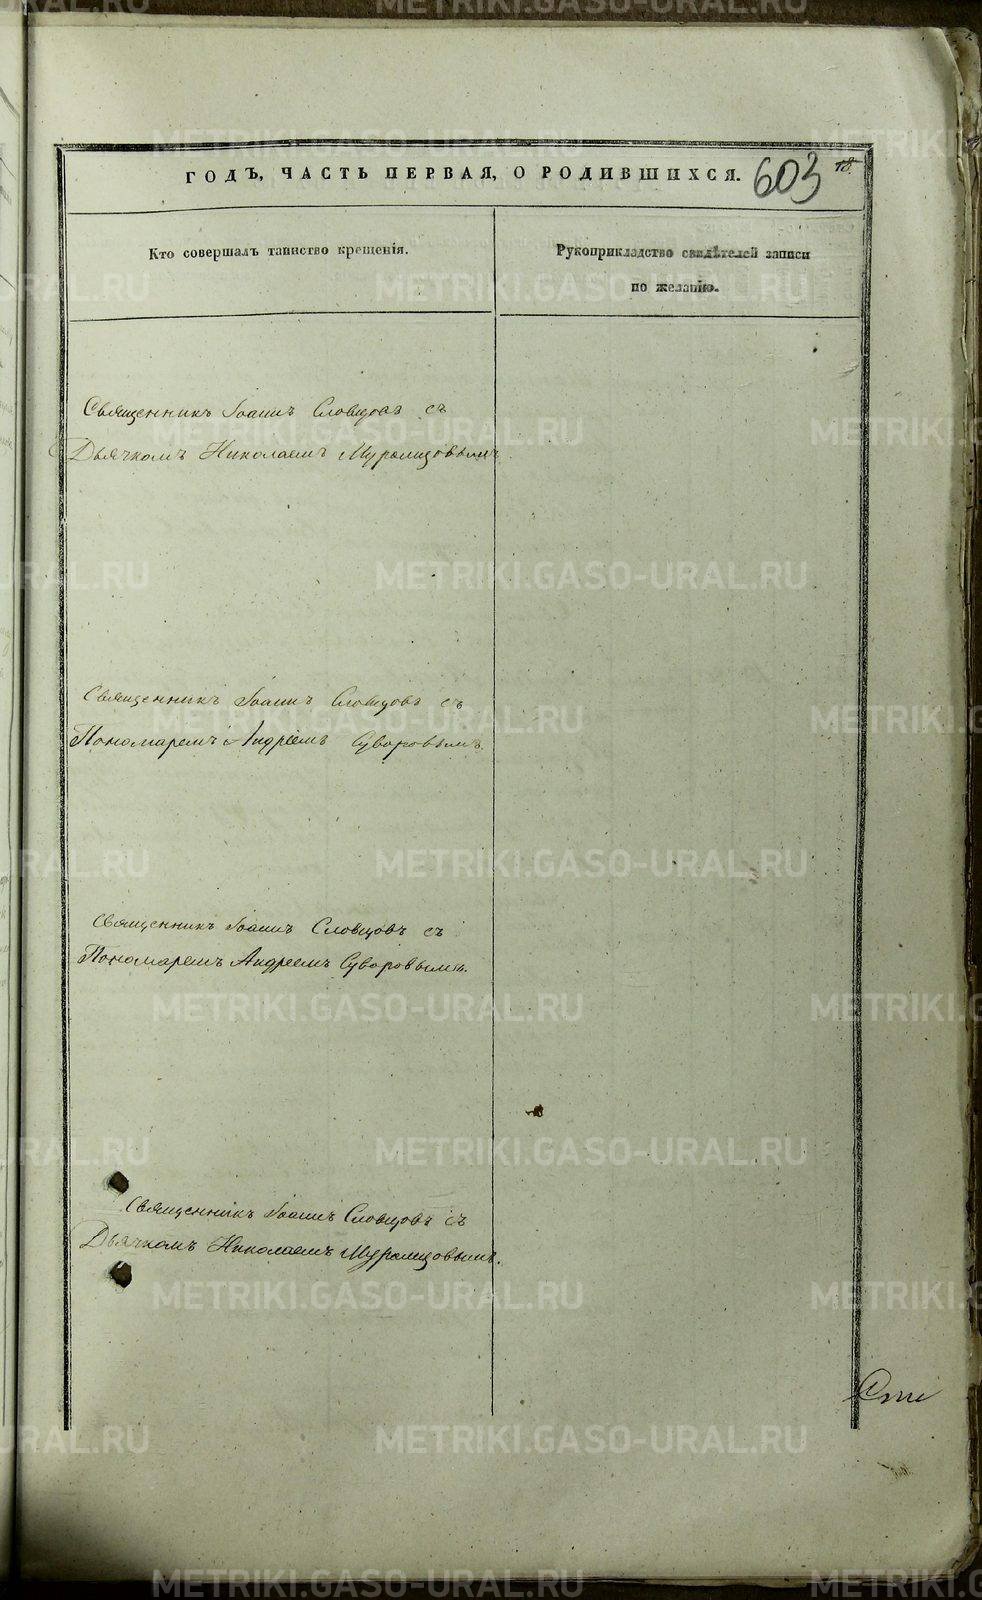 ГОДЪ, ЧАСТЬ ПЕРВАЯ, О РОДИВШИХСЯ.
603
18
Кто совершалъ таинство крещенія.
Рукоприкладство свидѣтелей записи
по желанію.
Священникъ Іоаннъ Словцовъ съ
Дьячкомъ Николаемъ Мурамцовымъ.
Священникъ Іоаннъ Словцовъ съ
Пономаремъ Андріемъ Суворовымъ.
Священникъ Іоаннъ Словцовъ съ
Пономаремъ Андреемъ Суворовымъ.
Священникъ Іоаннъ Словцовъ съ
Дьячкомъ Николаемъ Мурамцовымъ.
METRIKI.GASO-URAL.RU